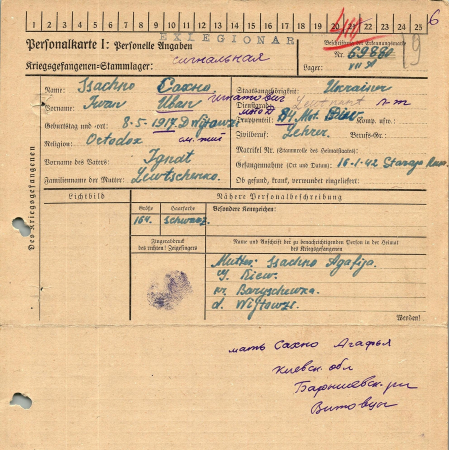 1 2 3 4 5 6 7 8 9 10 11 12 13 14 15 16 17 18 19 20 21 22 23 24 25
6
EXLEGIONAR
Personalkarte I: Personelle Angaben
Beschriftung der Erkennungsmarke
Kriegsgefangenen-Stammlager: сигнальная
Nr. 69880
19
Lager: VII A
Des Kriegsgefangenen
Name: Ssachno Сахно
Staatsangehörigkeit: Ukrainer
Vorname: Iwan Иван Игнатович
Dienstgrad: Leutnant л-т
Truppenteil: 84 Mot. Komp. usw.:
Geburtstag und -ort: 8-5-1917 D Wijtowzi
Zivilberuf: Lehrer. Berufs-Gr.:
Religion: Ortodox
Matrikel Nr. (Stammrolle des Heimatstaates):
Vorname des Vaters: Ignat
Gefangennahme (Ort und Datum): 16-1-42 Staraja Russ.
Familienname der Mutter: Lewtschenko
Ob gefund, krank, verwundet eingeliefert:
Lichtbild
Nähere Personalbeschreibung
Größe
Haarfarbe
Besondere Kennzeichen:
164. Schwarz.
Fingerabdruck
des rechten! Zeigefingers
Name und Anschrift der zu benachrichtigenden Person in der Heimat
des Kriegsgefangenen
Mutter: Ssachno Agafija.
G. Kiew.
w. Baryschiwka.
d. Wijtowzi.
Werden!
мать Сахно Агафья
Киевск. обл
Барышевск. р-н
Витовцы